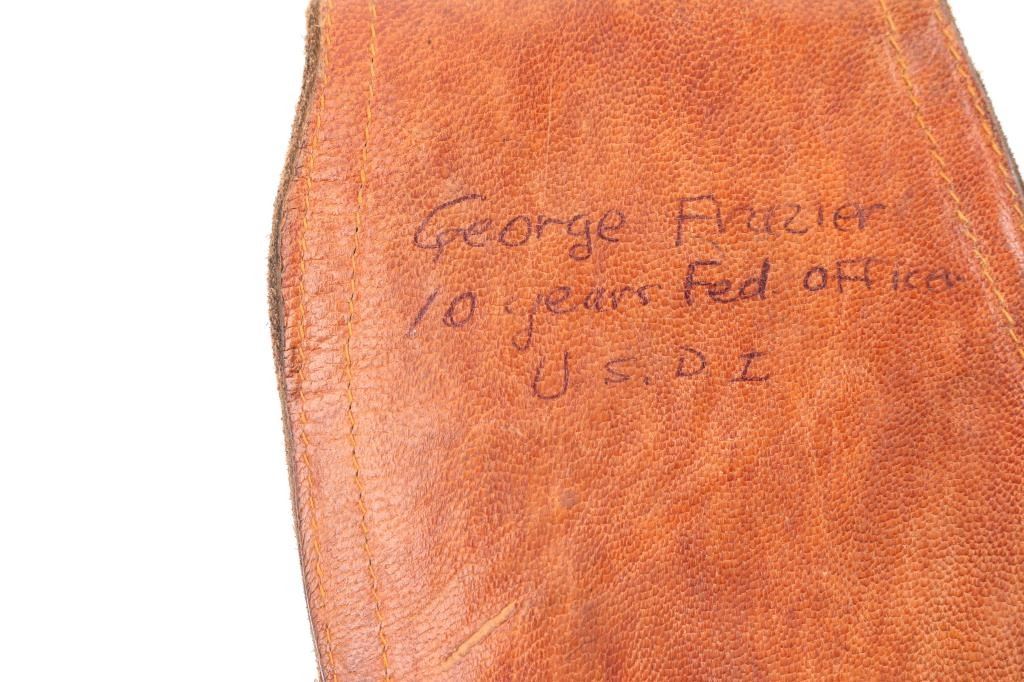 George Frazier
10 years Fed Officer
U.S.D I